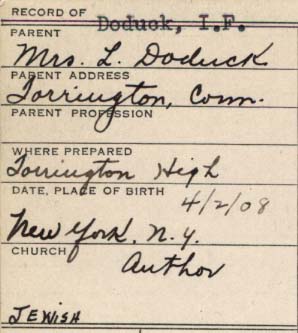 RECORD OF Doduck, I.F.
PARENT
Mrs. L. Doduck
PARENT ADDRESS
Torrington, Conn.
PARENT PROFESSION
WHERE PREPARED
Torrington High
DATE, PLACE OF BIRTH 4/2/08
New York, N.Y.
CHURCH Author
JEWISH